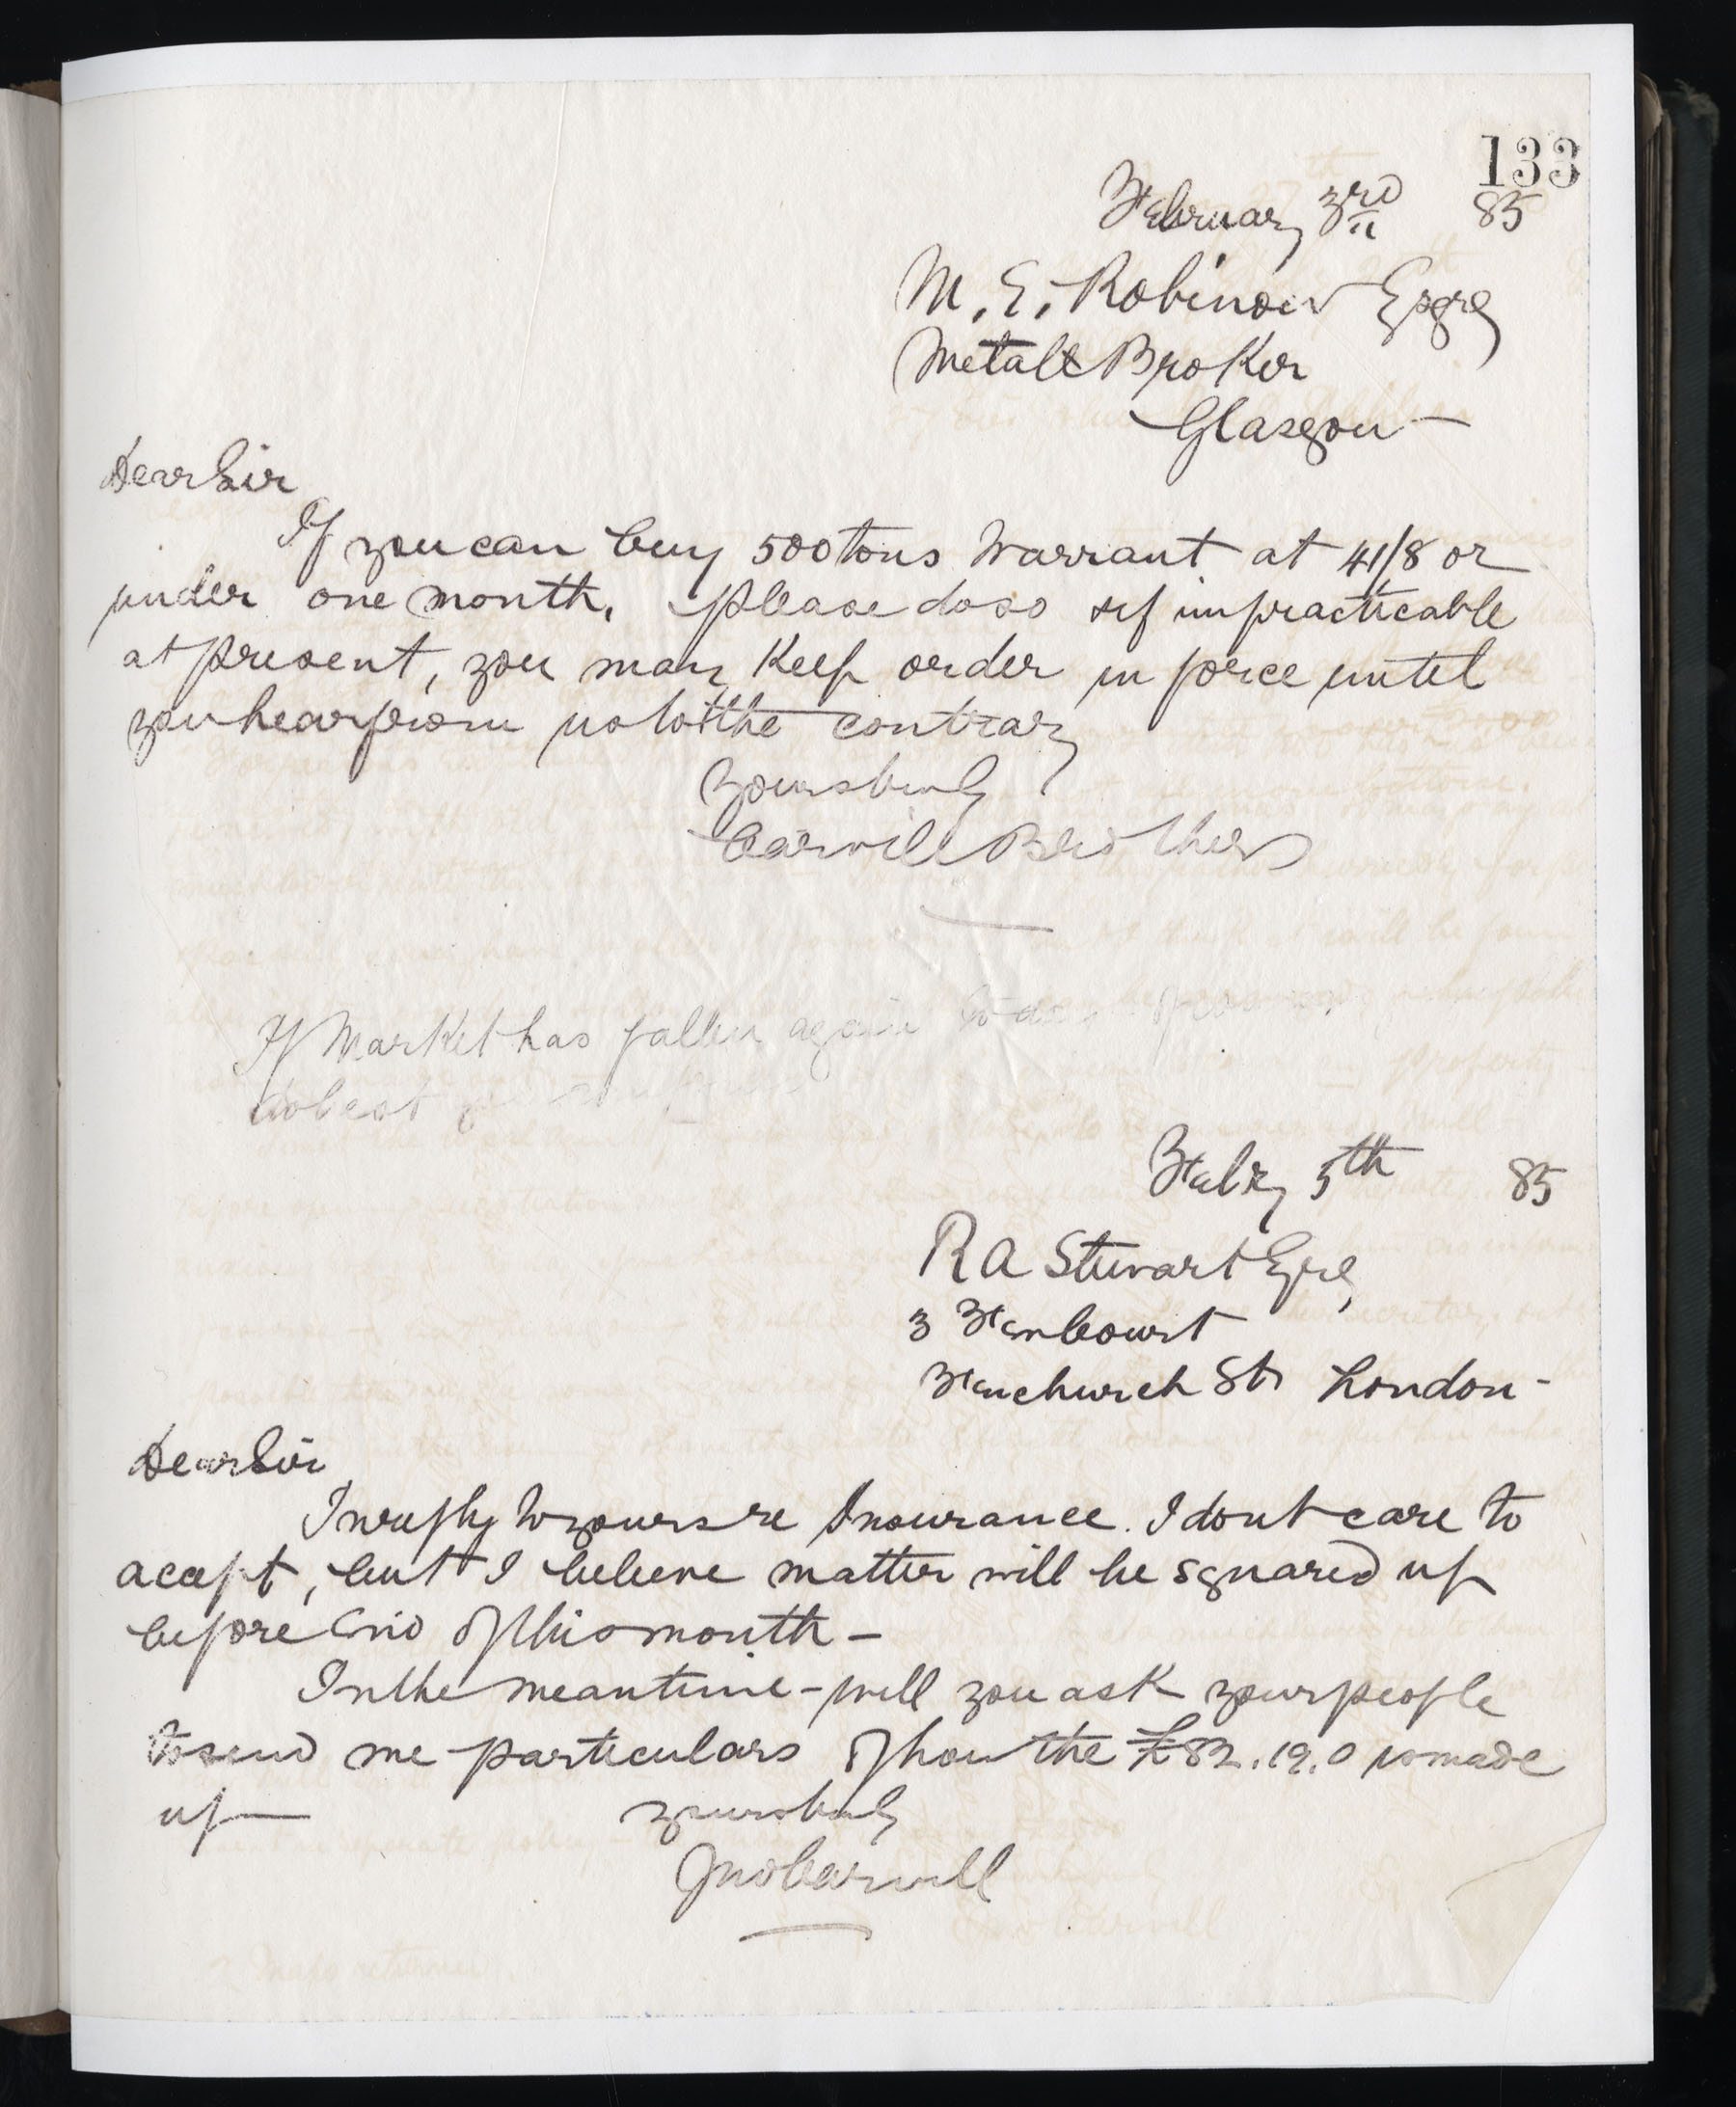 133
February 3rd 85
M. E. Robinow Esqre
Metall Broker
Glasgow —
Dear Sir
If you can buy 500 tons Warrant at 41/8 or
under one month. please do so & if impracticable
at present, you may keep order in force until
you hear from us to the contrary
Yours truly
Carvill Brothers
If Market has fallen again
do best
Feby 5th 85
R A Stewart Esqre,
3 Fen Court
Fenchurch St. London -
Dear Sir
In reply to yours re Insurance. I dont care to
accept, but I believe matter will be squared up
before End of this month —
In the meantime - will you ask your people
to send me particulars of how the £82.19.0 is made
up — yours truly
Jno Carvill